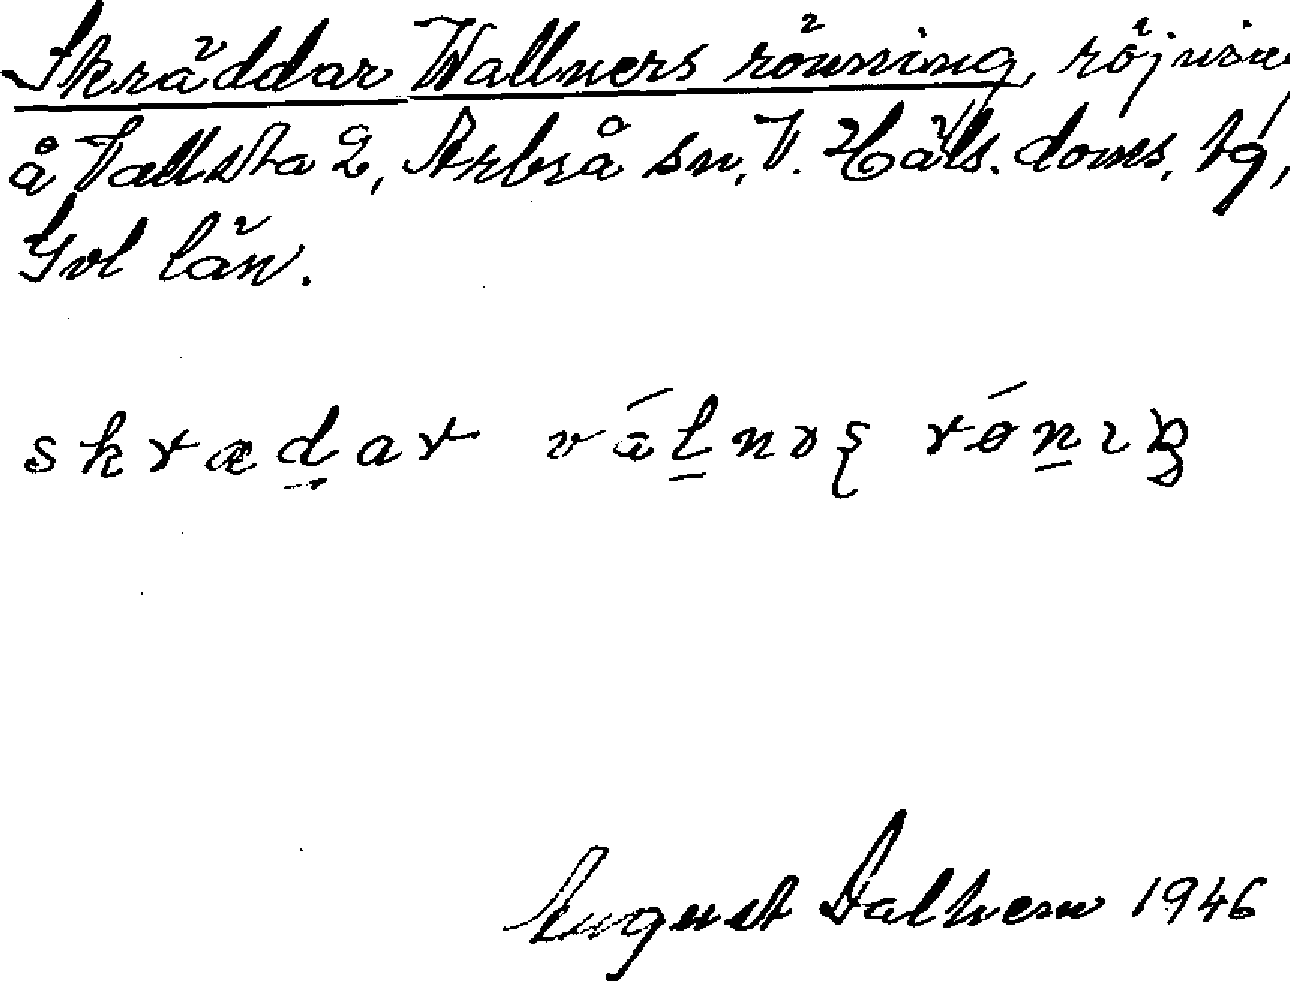 Skräddar Wallners rönning, röjning
å Vallsta 2, Arbrå sn, V. Häls. doms. tg,
Gvl län.
skræd̲ar vál̲nɤʂ rón̲ıŋ
August Dalhem 1946